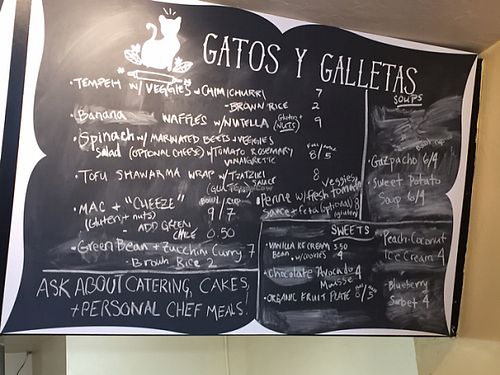 GATOS Y GALLETAS
• TEMPEH W/ VEGGIES + CHIMICHURRI 7
- BROWN RICE 2
• Banana WAFFLES W/ NUTELLA (Gluten + NUTS) 9
• Spinach w/ MARINATED BEETS + VEGGIES
Salad (OPTIONAL CHEESE) w/ TOMATO ROSEMARY 8/5
VINNAIGRETTE
• TOFU SHAWARMA WRAP W/ TZATZIKI 8
SAUCE
BOWL / CUP
• MAC + "CHEEZE" 9/7
(Gluten + nuts)
- ADD GREEN
CHILE 0.50
• Green Bean + Zucchini Curry 7
- Brown Rice 2
veggies,
• Penne w/ fresh tomato 8
Sauce + feta (optional)
(gluten)
ASK ABOUT CATERING, CAKES,
+ PERSONAL CHEF MEALS!
SOUPS
BOWL CUP
• Gazpacho 6/4
• Sweet Potato
Soup 6/4
SWEETS
• VANILLA ICE CREAM 3.50
Bean w/ COOKIES 4
• Chocolate Avocado 4
Mousse
• ORGANIC FRUIT PLATE 8/5
• Peach-Coconut
Ice Cream 4
• Blueberry
Sorbet 4